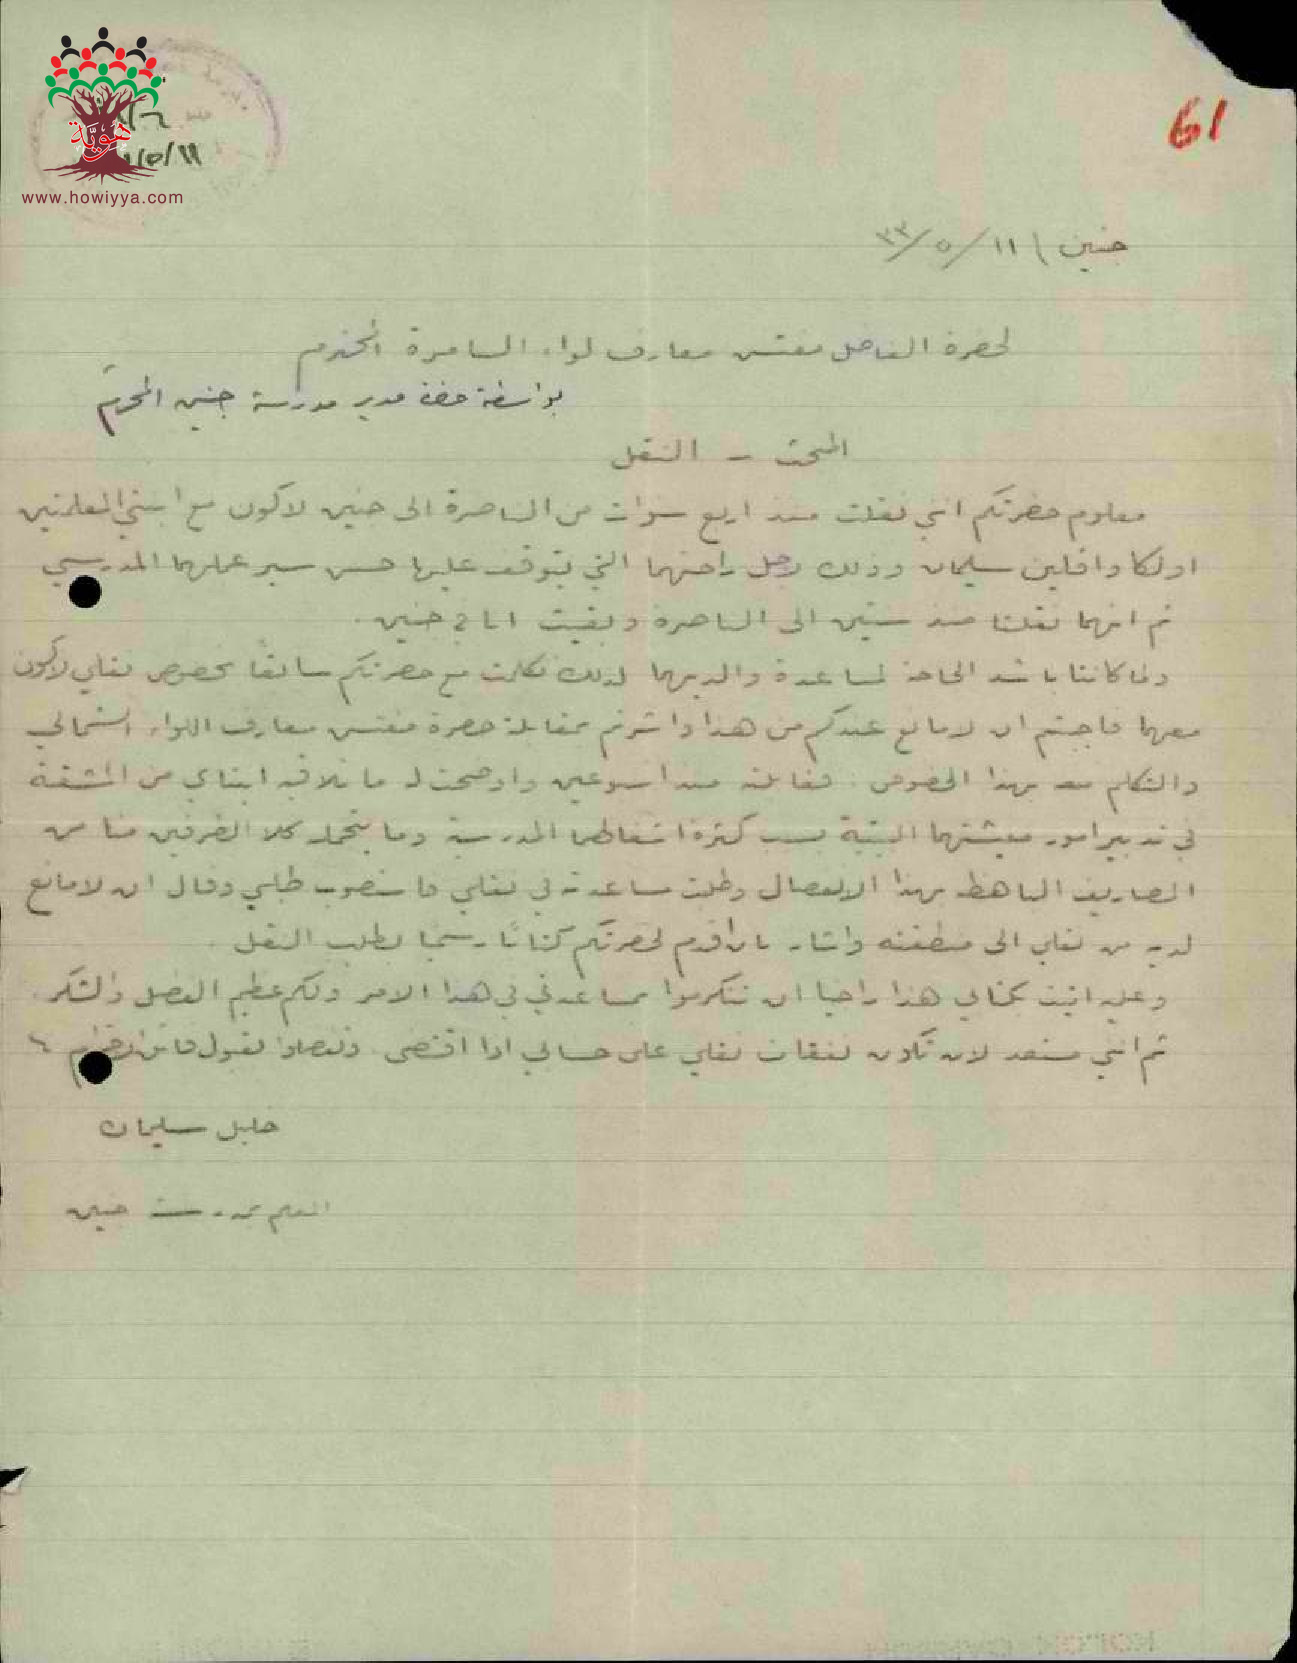 هوية
www.howiyya.com
61
١١/٥/
جنين / ١١ / ٥ / ٣٣
لحضرة الفاضل مفتش معارف لواء السامرة المحترم
بواسطة حضرة مدير مدرسة جنين المحترم
المبحث – النقل
معلوم حضرتكم انني نقلت منذ اربع سنوات من الناصرة الى جنين لاكون مع ابنتي المعلمتين
اولكا وافلين سليمان وذلك لاجل راحتهما التي يتوقف عليها حسن سير عملهما المدرسي
ثم انهما نقلتا منذ سنتين الى الناصرة وبقيت انا في جنين .
ولما كانتا باشد الحاجة لمساعدة والديهما لذلك تكلمت مع حضرتكم سابقاً بخصوص نقلي لاكون
معهما فاجبتم ان لا مانع عندكم من هذا واشرتم بمقابلة حضرة مفتش معارف اللواء الشمالي
والتكلم معه بهذا الخصوص . فقابلته منذ اسبوعين واوضحت له ما تلاقيه ابنتاي من المشقة
في تدبير امور معيشتهما البيتية بسبب كثرة اشغالهما المدرسية وما يتحمله كلا الطرفين منا من
المصاريف الباهظة بهذا الانفصال وطلبت مساعدته في نقلي فاستصوب طلبي وقال ان لا مانع
لديه من نقلي الى منطقته واشار بان اقدم لحضرتكم كتاباً رسمياً بطلب النقل .
وعليه اتيت بكتابي هذا راجيا ان تتكرموا بمساعدتي في هذا الامر ولكم عظيم الفضل والشكر .
ثم انني مستعد لان تكون نفقات نقلي على حسابي اذا اقتضى . وتفضلوا بقبول فائق الاحترام
خليل سليمان
المعلم بمدرسة جنين